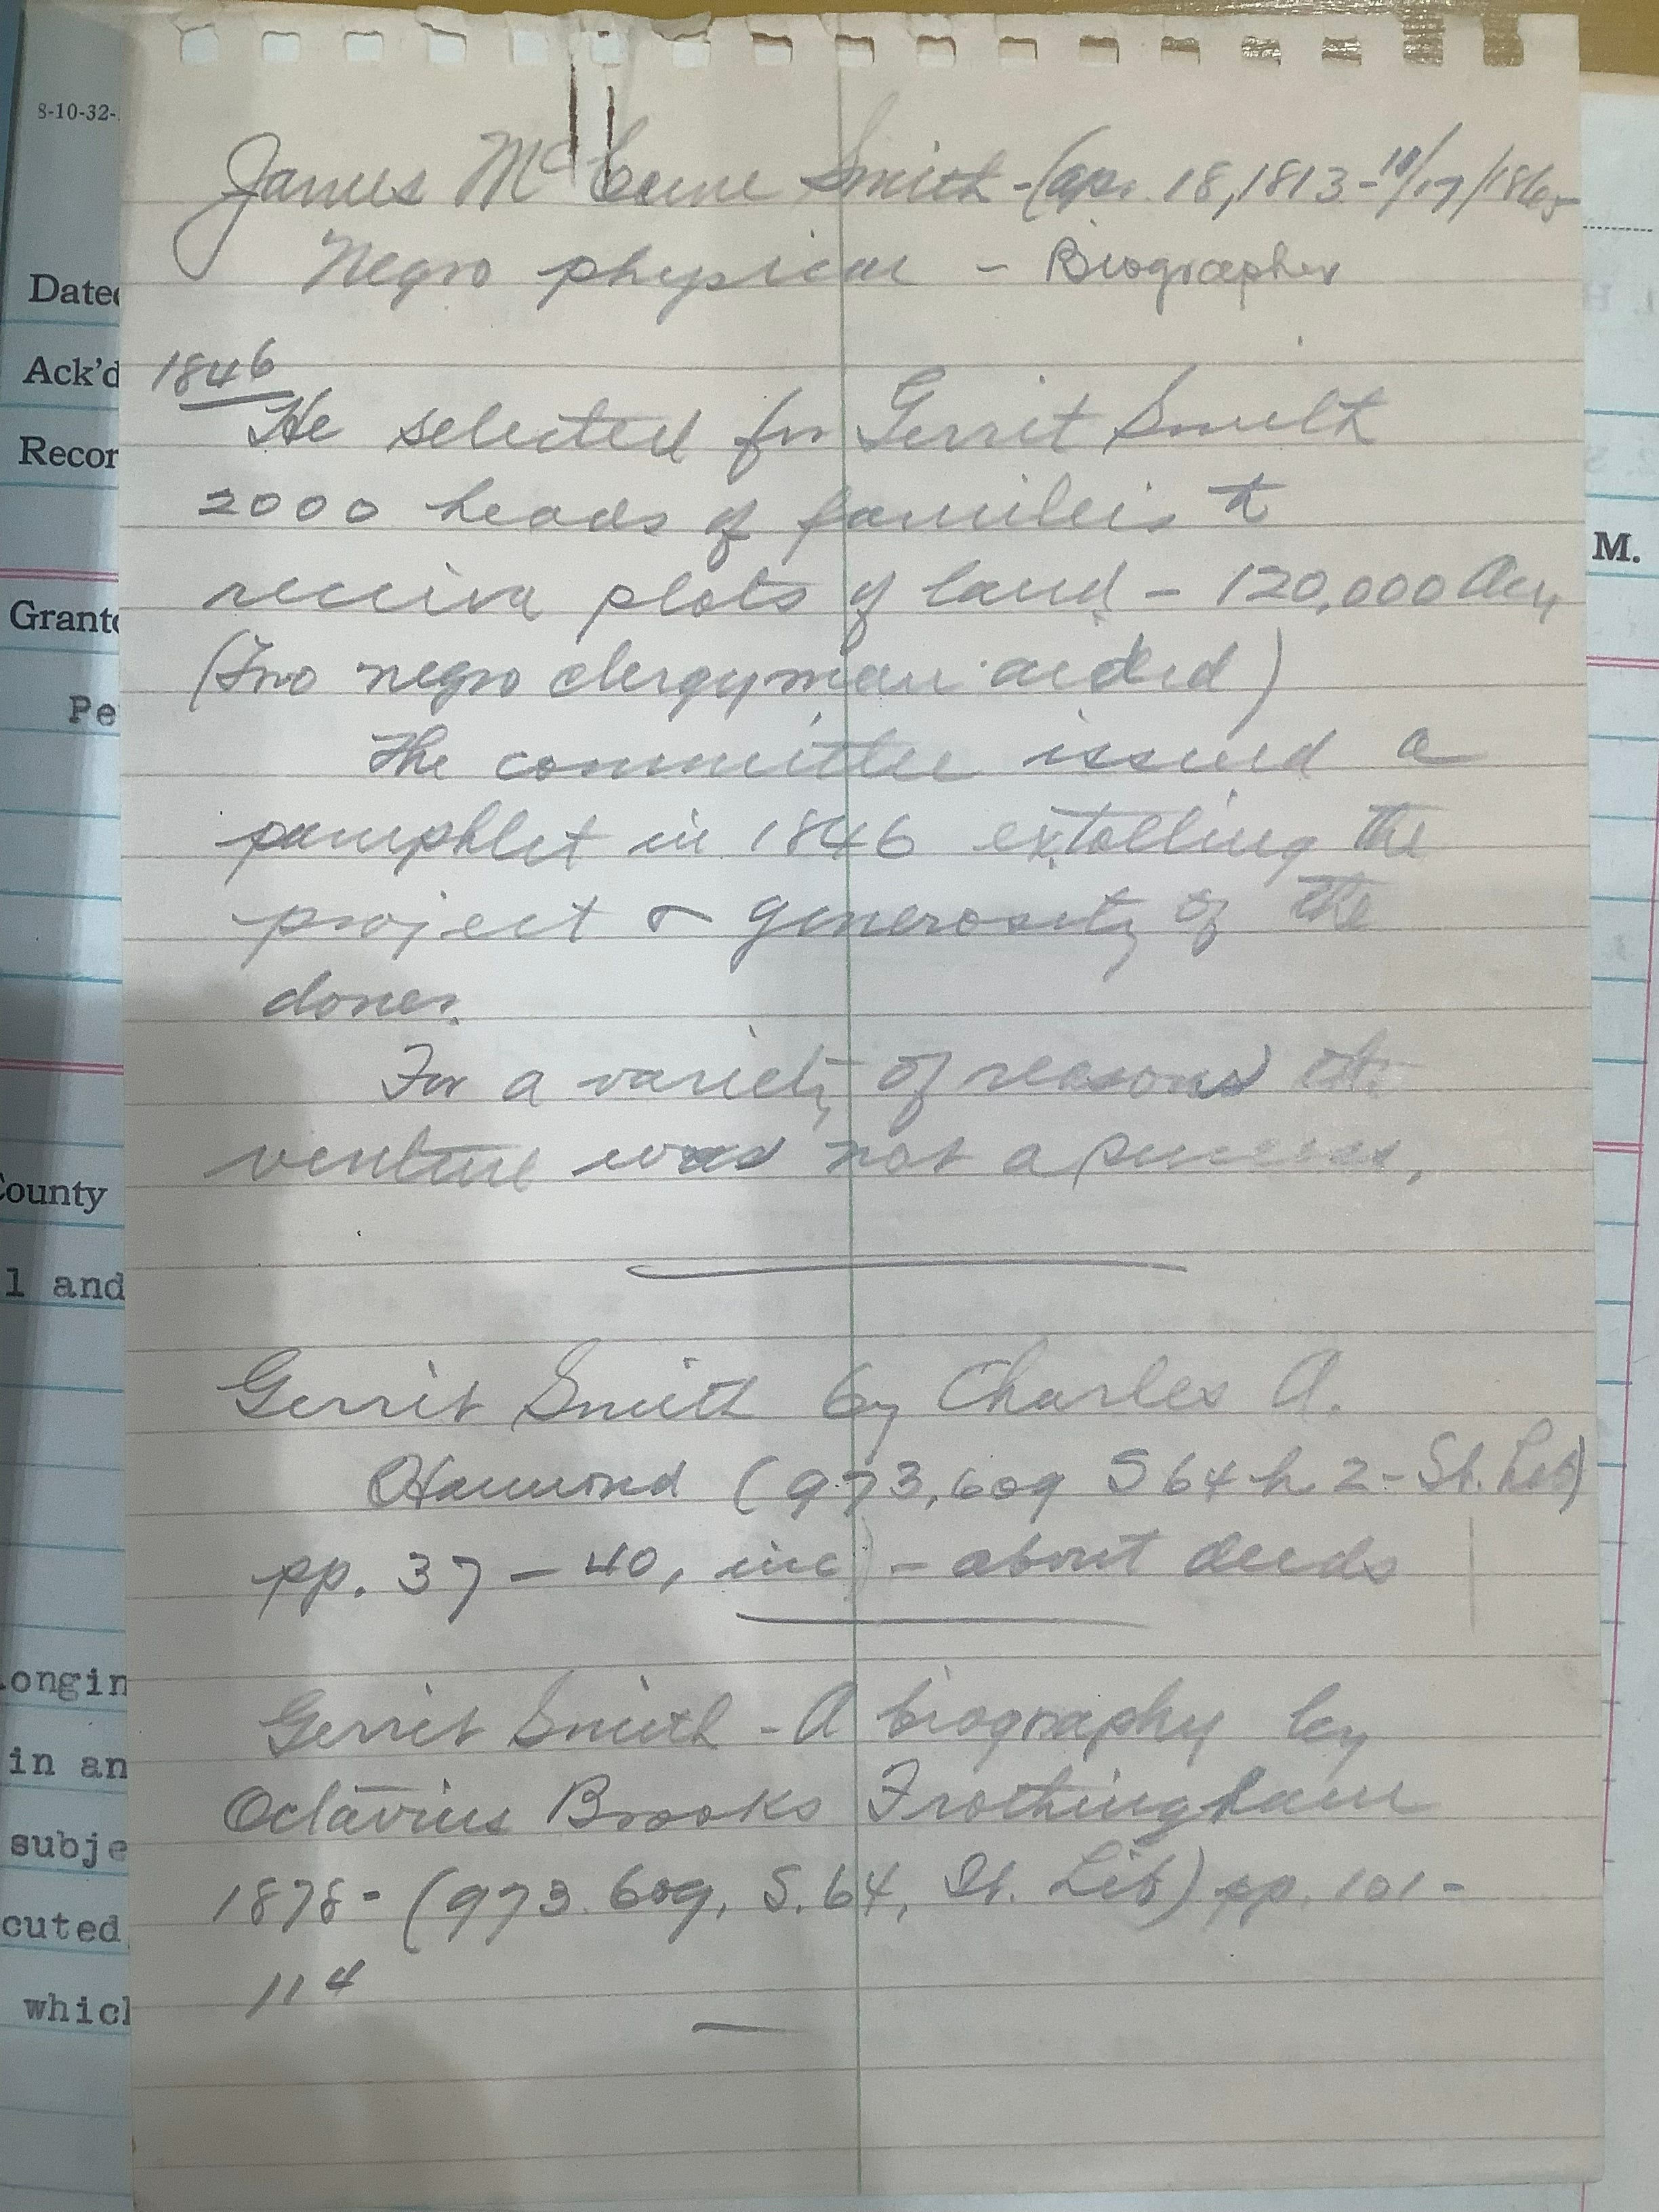 8-10-32-
James McCune Smith - (Apr. 18, 1813 - 10/17/1865
Negro physician - Biographer
1846
He selected for Gerrit Smith
2000 heads of families to
receive plots of land - 120,000 Acres
(Two negro clergyman aided)
The committee issued a
pamphlet in 1846 extolling the
project & generosity of the
doner.
For a variety of reasons the
venture was not a success.
Gerrit Smith by Charles A.
Hammond (973.609 S64h2 - St. Lib)
pp. 37 - 40, inc) - about deeds
Gerrit Smith - A biography by
Octavius Brooks Frothingham
1878 - (973.609, S.64, St. Lib) pp. 101 -
114
Dated
Ack'd
Recor
Grante
Pe
County
1 and
ongin
in an
subje
cuted
which
M.